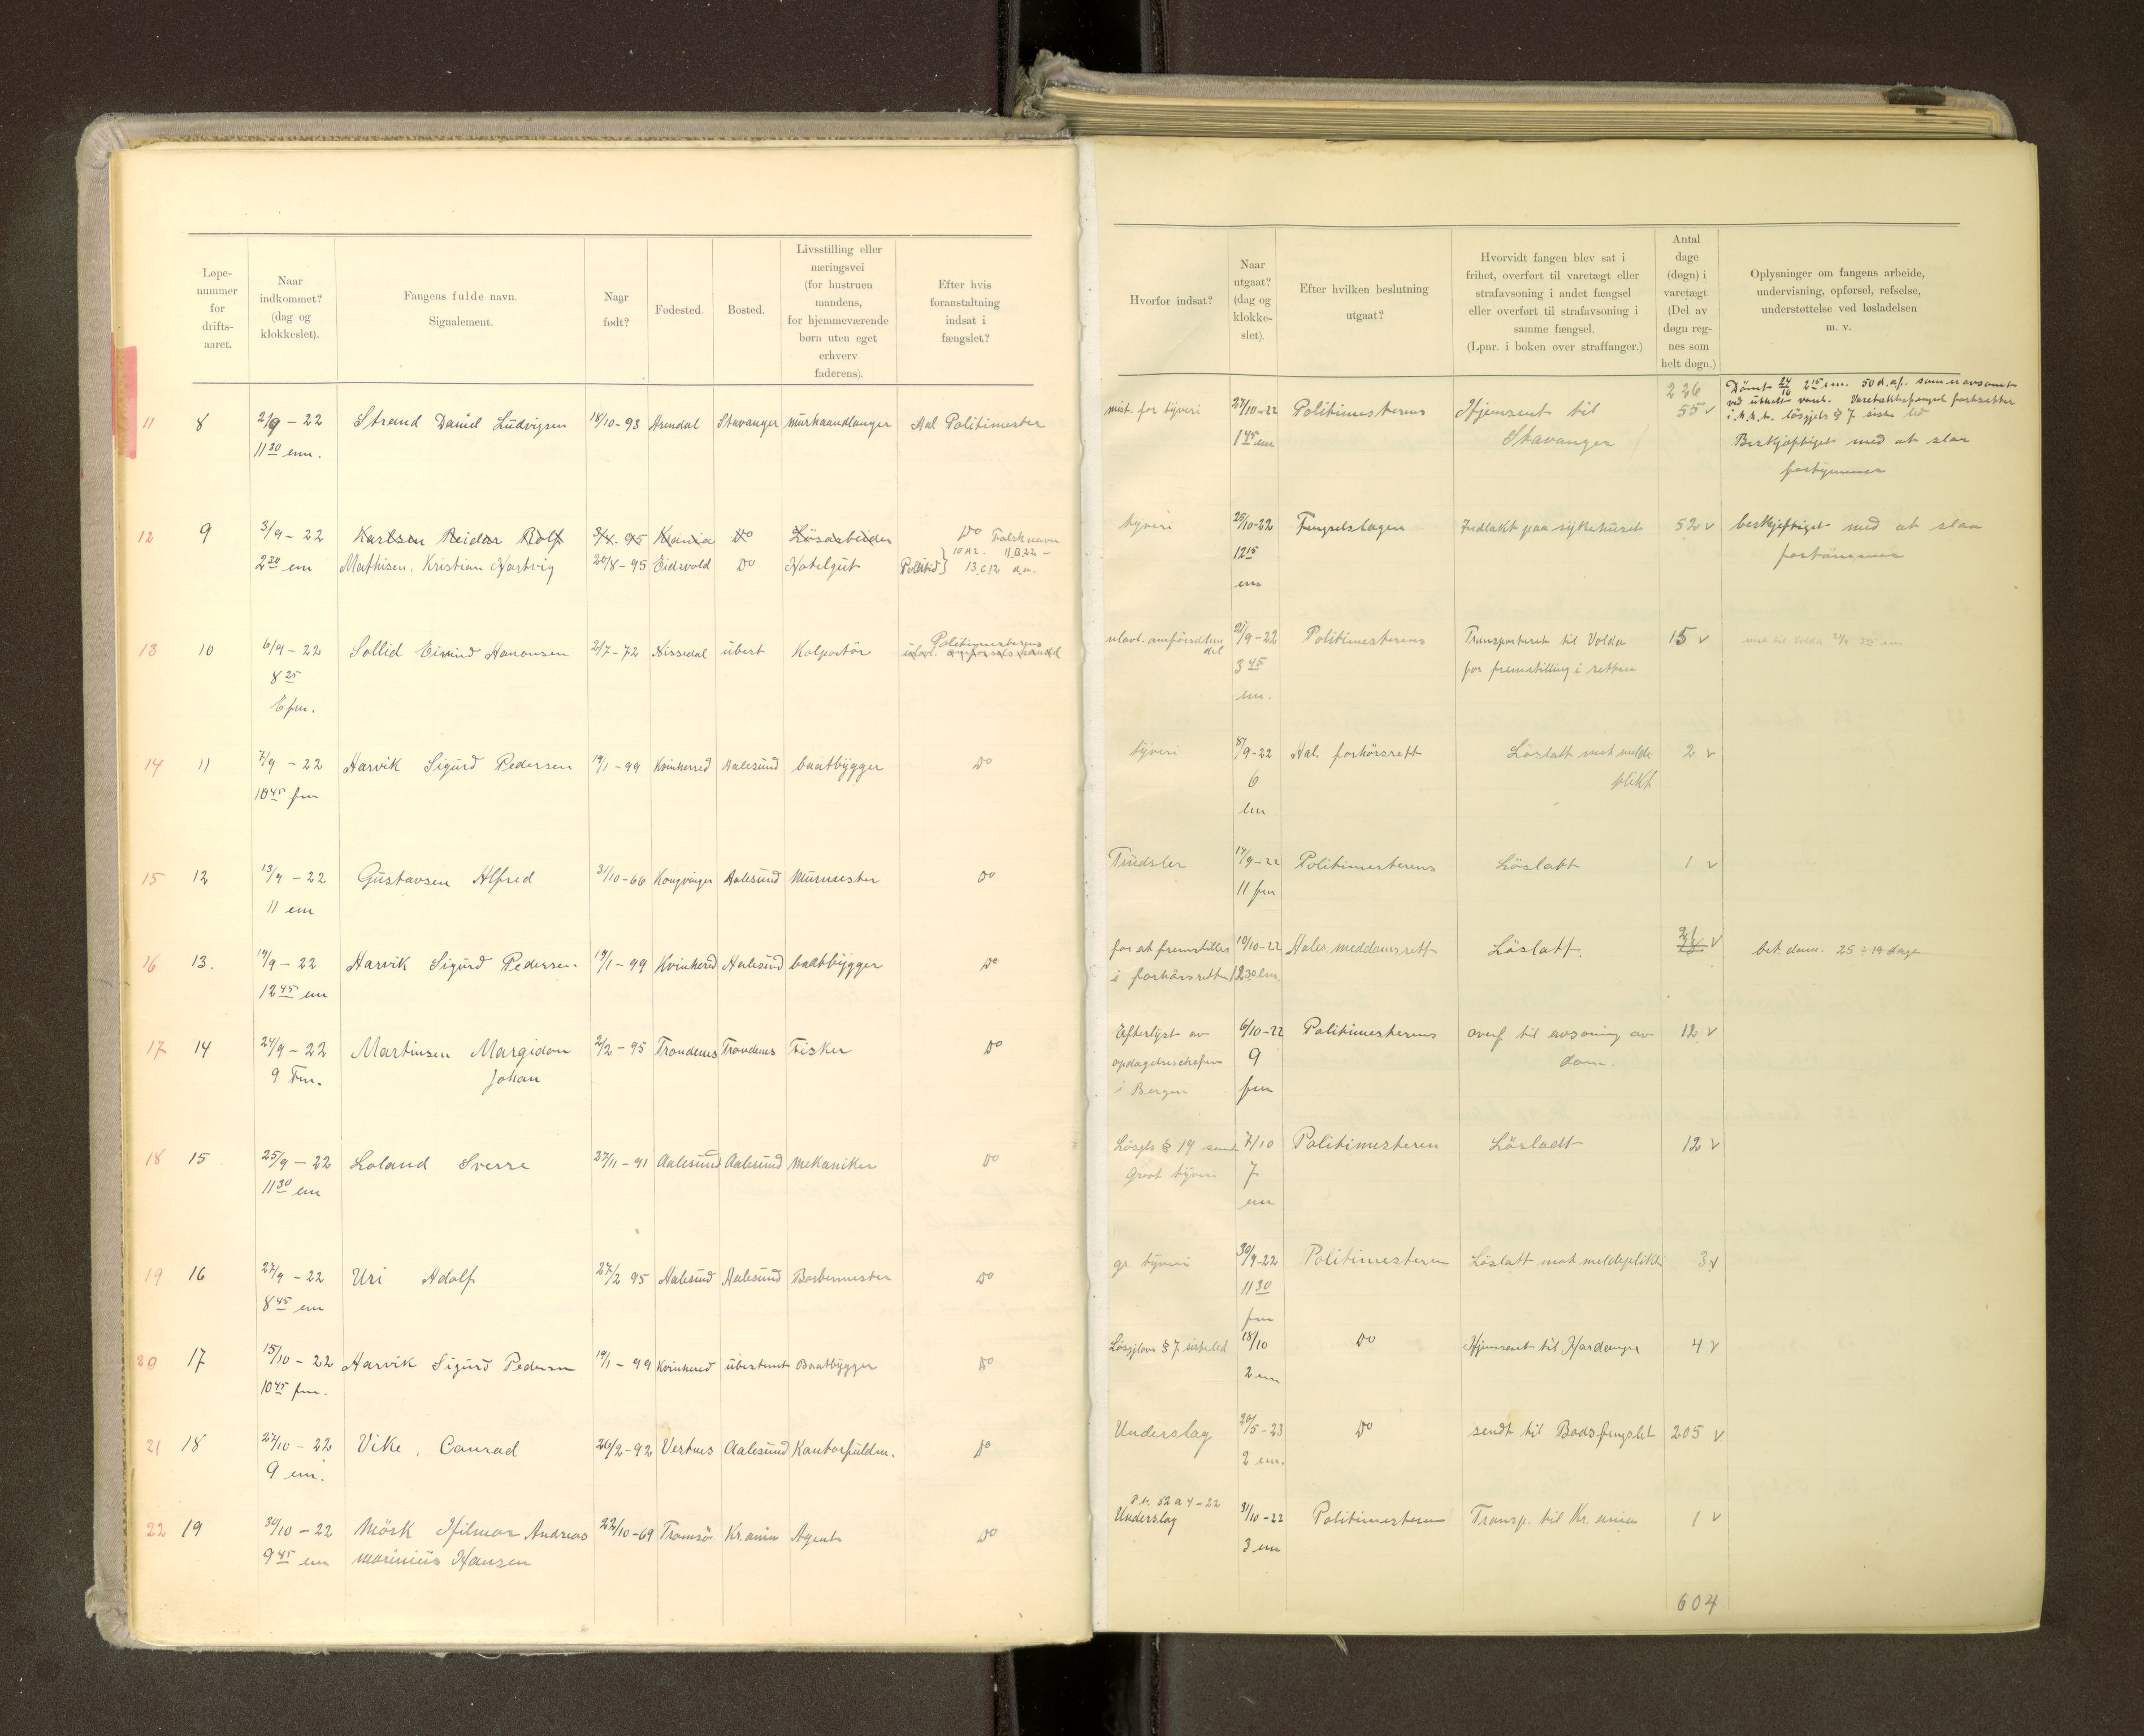 Løpe-
nummer
for
drifts-
aaret.
Naar
indkommet?
(dag og
klokkeslet).
Fangens fulde navn.
Signalement.
Naar
født?
Fødested.
Bosted.
Livsstilling eller
næringsvei
(for hustruen
mandens,
for hjemmeværende
børn uten eget
erhverv
faderens).
Efter hvis
foranstaltning
indsat i
fængslet?
Hvorfor indsat?
Naar
utgaat?
(dag og
klokke-
slet).
Efter hvilken beslutning
utgaat?
Hvorvidt fangen blev sat i
frihet, overført til varetægt eller
strafavsoning i andet fængsel
eller overført til strafavsoning i
samme fængsel.
(Lpnr. i boken over straffanger.)
Antal
dage
(døgn) i
varetægt.
(Del av
døgn reg-
nes som
helt døgn.)
Oplysninger om fangens arbeide,
undervisning, opførsel, refselse,
understøttelse ved løsladelsen
m. v.
11 8 2/9 - 22 Strand Daniel Ludvigsen 18/10-93 Arendal Stavanger murhaandlanger Aal Politimester
11 30 em.
mist. for tyveri 27/10-22 Politimesterens Hjemsent til 226 55 v
1 45 em Stavanger
Dømt 24/10 2 15 em. 50 d. af. som er avsonet
Beskjæftiget med at slaa
12 9 3/9 - 22 Karlsen Reidar Rolf 3/x-95 Krania Do Løsarbeider Do Falsk navn
2 30 em Mathisen, Kristian Hartvig 20/8-95 Eidsvold Do Hotelgut Politid} 13.C12 d.a.
tyveri 25/10-22 Fengselslægen Indlakt paa sykehuset 52 v beskjeftiget med at slaa
12 15
em
13 10 6/9 - 22 Sollid Eivind Hanonsen 2/7-72 Nissedal ubest Kolportör Politimesterens
8 25
fm.
ulovl. omførselshandel 21/9-22 Politimesterens Transporteret til Volda 15 v
3 45 for fremstilling i retten
em.
14 11 7/9 - 22 Harvik Sigurd Pedersen 19/1-99 Kvinherred Aalesund baatbygger Do
10 45 fm
tyveri 8/9-22 Aal. forhörsrett Löslatt mot melde 2 v
6 plikt
em
15 12 13/9 - 22 Gustavsen Alfred 31/10-66 Kongvinger Aalesund Murmester Do
11 em
Trudsler 14/9-22 Politimesterens Löslatt 1 v
11 fm
16 13. 19/9 - 22 Harvik Sigurd Pedersen 19/1-99 Kvinherred Aalesund baatbygger Do
12 45 em
for at fremstilles 10/10-22 Aales. meddomsrett Löslatt. 21 v bet. dom. 25 ÷ 19 dage
i forhörsretten 12 30 em.
17 14 24/9 - 22 Martinsen Margidon 2/2-95 Trondenes Trondenes Fisker Do
9 Fm. Johan
Efterlyst av 6/10-22 Politimesterens overf til avsoning av 12 v
opdagelseschefen 9 dom.
i Bergen fm
18 15 25/9 - 22 Loland Sverre 27/11-91 Aalesund Aalesund Mekaniker Do
11 30 em
Løsgls § 19 samt 7/10 Politimesteren Lösladt 12 v
Grovt tyveri 7
em
19 16 27/9 - 22 Uri Adolf 27/2 95 Aalesund Aalesund Barbermester Do
8 45 em
gr. tyveri 30/9-22 Politimesteren Löslatt mot meldeplikt 3 v
11 30
fm
20 17 15/10 - 22 Harvik Sigurd Pedersen 19/1-99 Kvinhered ubestemt Baatbygger Do
10 45 fm.
Løsgjlovn § 7 sisteled 18/10 Do Hjemsent til Hardanger 4 v
2 em
21 18 27/10 - 22 Vike, Conrad 26/2-92 Vestnes Aalesund Kontorfuldm. Do
9 em.
Underslag 20/5-23 Do sendt til Bodsfengslet 205 v
2 em.
22 19 30/10 - 22 Mörk Hilmar Andreas 22/10-69 Tromsö Kr.ania Agent Do
9 45 em Marinius Hansen
P.u. 52 a 4 - 22
Underslag 31/10-22 Politimesteren Transp. til Kr.ania 1 v
3 em
604